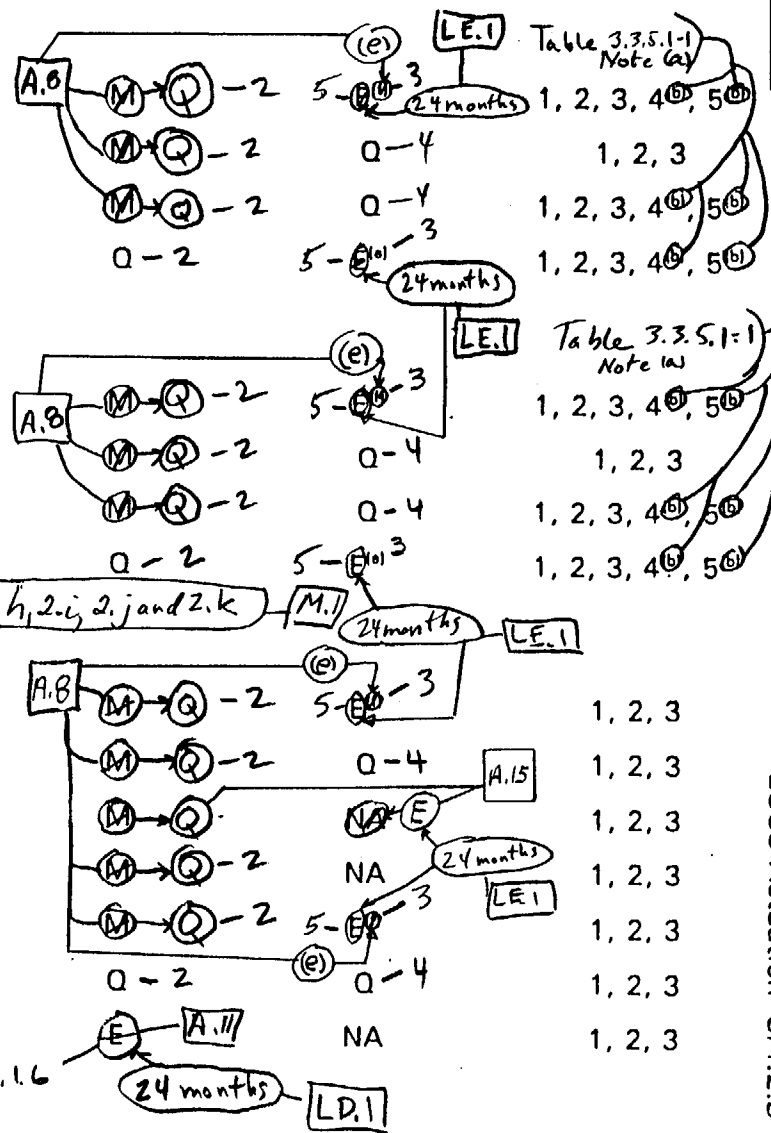 (e) LE.1 Table 3.3.5.1-1
Note (a)
A.8 M Q - 2 5 - E 3 24 months 1, 2, 3, 4(b), 5(b)
M Q - 2 Q - 4 1, 2, 3
M Q - 2 Q - 4 1, 2, 3, 4(b), 5(b)
Q - 2 5 - E - 3 1, 2, 3, 4(b), 5(b)
24 months
LE.1 Table 3.3.5.1-1
(e) Note (a)
A.8 M Q - 2 5 - E - 3 1, 2, 3, 4(b), 5(b)
M Q - 2 Q - 4 1, 2, 3
M Q - 2 Q - 4 1, 2, 3, 4(b), 5(b)
Q - 2 5 - E 3 1, 2, 3, 4(b), 5(b)
h, 2.i, 2.j and 2.k M.1 24 months LE.1
(e)
A.8 M Q - 2 5 - E - 3 1, 2, 3
M Q - 2 Q - 4 A.15 1, 2, 3
M Q NA E 1, 2, 3
M Q - 2 NA 24 months 1, 2, 3
LE.1
M Q - 2 5 - E - 3 1, 2, 3
(e)
Q - 2 Q - 4 1, 2, 3
E A.11 NA 1, 2, 3
.1.6
24 months LD.1